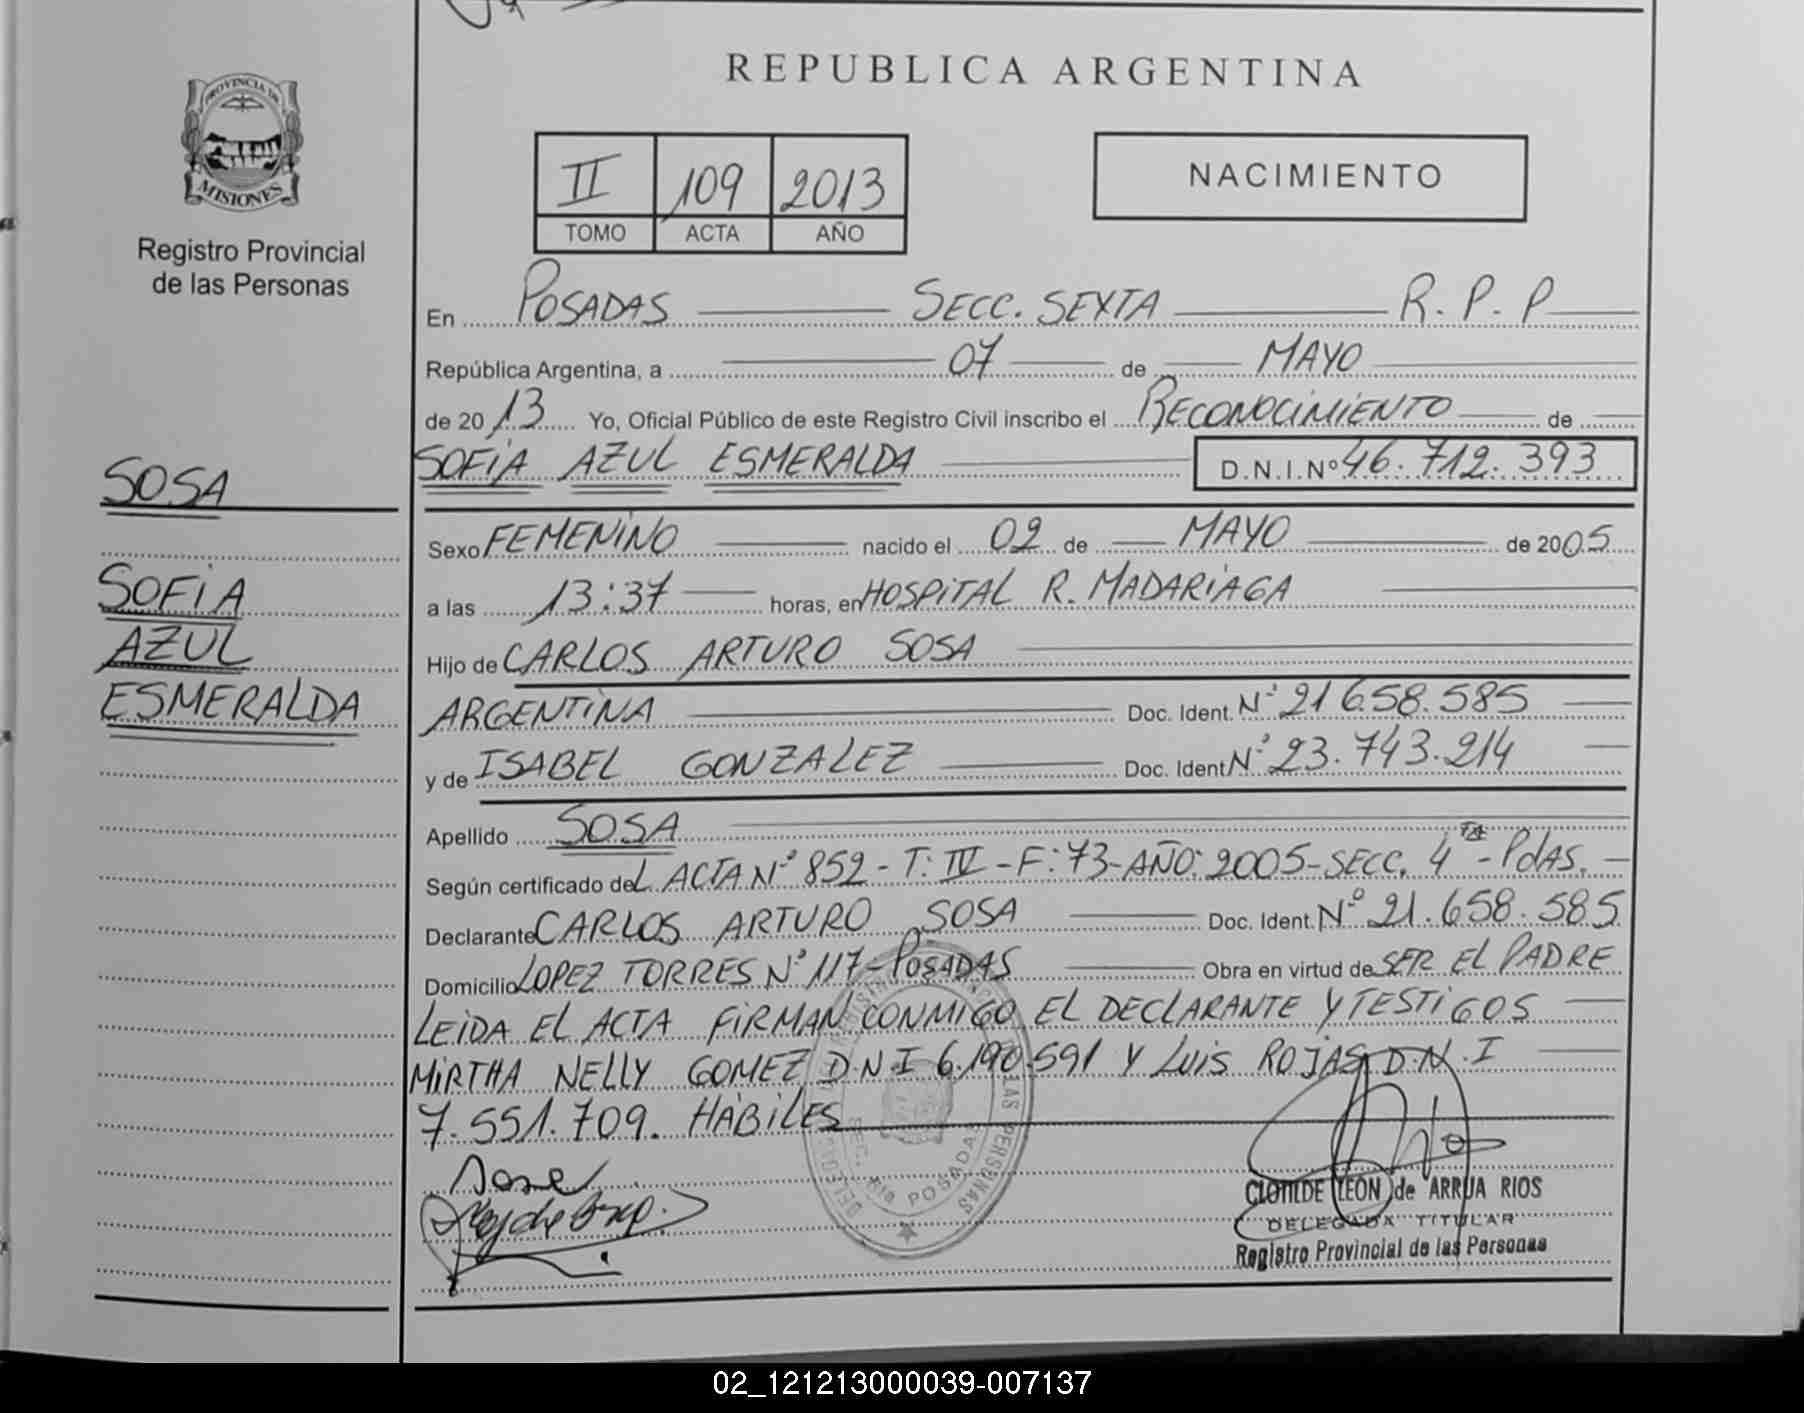 REPUBLICA ARGENTINA
PROVINCIA DE
MISIONES
Registro Provincial
de las Personas
II 109 2013
TOMO ACTA AÑO
NACIMIENTO
En POSADAS SECC. SEXTA R. P. P
República Argentina, a 07 de MAYO
de 2013 Yo, Oficial Público de este Registro Civil inscribo el RECONOCIMIENTO de
SOFIA AZUL ESMERALDA D.N.I.Nº 46.712.393
SOSA
SOFIA
AZUL
ESMERALDA
Sexo FEMENINO nacido el 02 de MAYO de 2005
a las 13:37 horas, en HOSPITAL R. MADARIAGA
Hijo de CARLOS ARTURO SOSA
ARGENTINA Doc. Ident. Nº 21 658.585
y de ISABEL GONZALEZ Doc. Ident Nº 23.743.214
Apellido SOSA
Según certificado del ACTA Nº 852 - T: IV - F: 73 - AÑO: 2005 - SECC. 4 TA - PdAS.
Declarante CARLOS ARTURO SOSA Doc. Ident. Nº 21.658.585
Domicilio LOPEZ TORRES Nº 117 - POSADAS Obra en virtud de SER EL PADRE
LEIDA EL ACTA FIRMAN CONMIGO EL DECLARANTE Y TESTIGOS
MIRTHA NELLY GOMEZ D.N.I 6.190.591 Y LUIS ROJAS D.N.I
7.551.709. HÁBILES
LAS PERSONAS
POSADAS
CLOTILDE LEON de ARRUA RIOS
DELEGADA TITULAR
Registro Provincial de las Personas
02_121213000039-007137